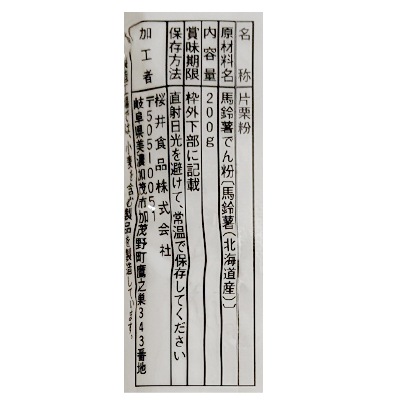 名称 片栗粉
原材料名 馬鈴薯でん粉〔馬鈴薯(北海道産)〕
内容量 200g
賞味期限 枠外下部に記載
保存方法 直射日光を避けて、常温で保存してください
加工者 桜井食品株式会社
〒505-0051
岐阜県美濃加茂市加茂野町鷹之巣343番地
では、小麦を含む製品を製造しています。